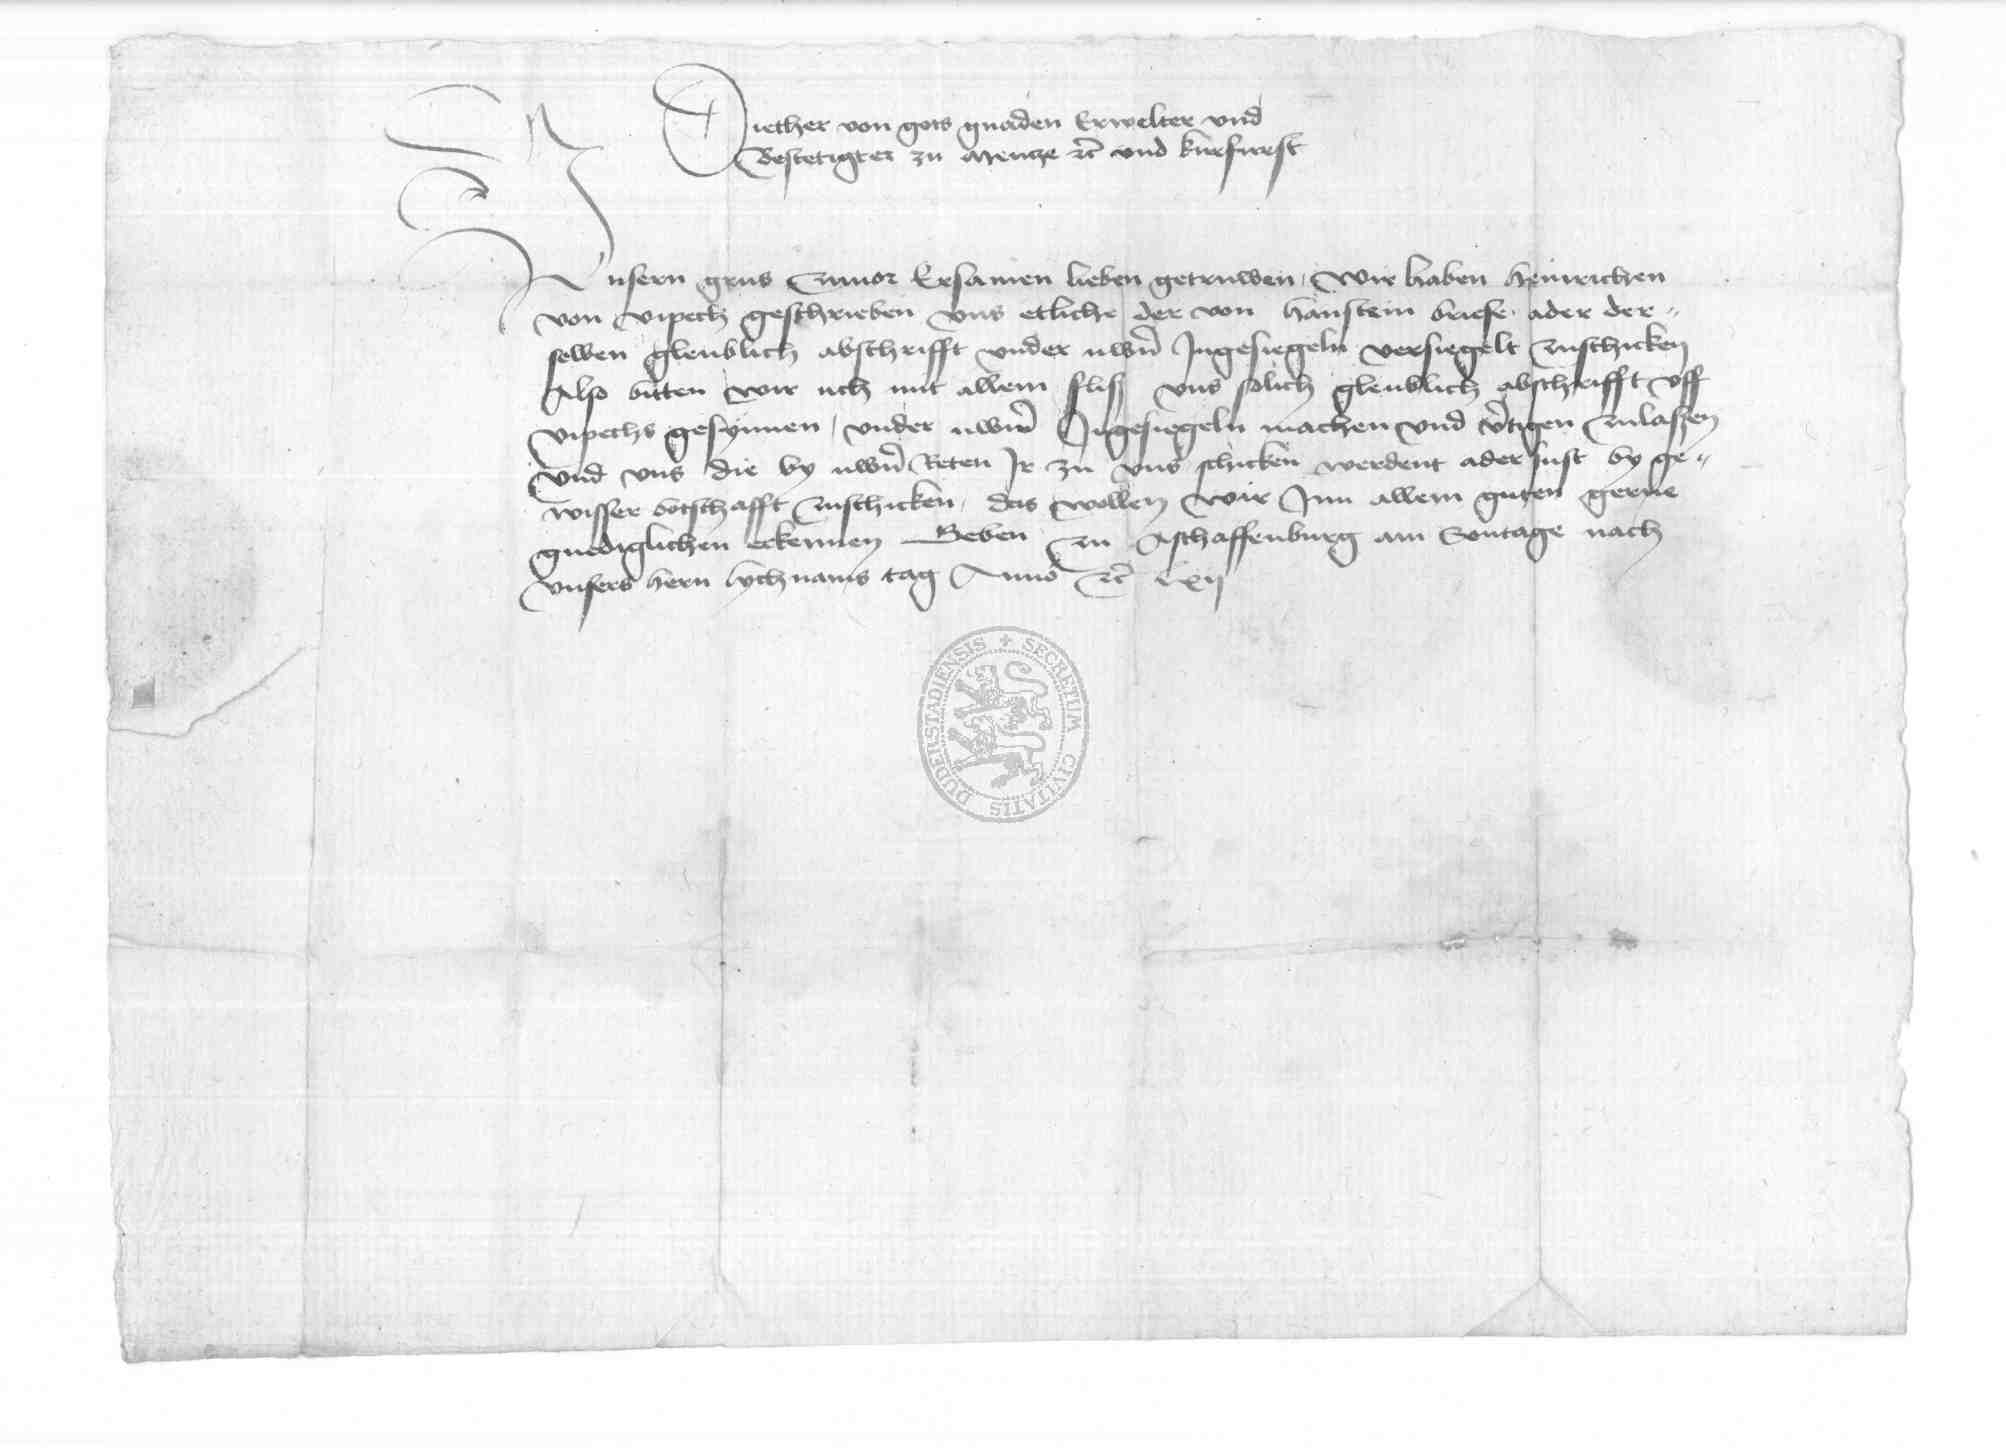 Diether von gots gnaden Erwelter vnd
Bestetigter zu Mentze etc vnd kurfurst
Vnsern grus zuuor Ersamen lieben getruwen, Wir haben heinrichen
von vipech geschrieben vns etliche der von hanstein briefe ader der-
selben gleublich abschrifft vnder uwern Ingesiegeln versiegelt zuschicken
Also bitten wir uch mit allem flisz vns solich gleublich abschrifft vff
vipechs gesynnen, vnder uwern Ingesiegeln machen vnd vertigen zulassen
vnd vns die by uwern Reten Ir zu vns schicken werdent ader sust by ge-
wisser botschafft zuschicken, das wollen wir Inn allem guten gerne
gnediglichen erkennen Geben zu Aschaffenburg am Sontage nach
vnsers hern lychnams tag Anno etc lxij
SECRETUM CIVITATIS DUDERSTADIENSIS